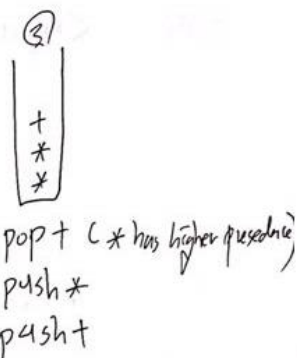 3
+
*
*
pop + ( * has higher presedence)
push *
push +